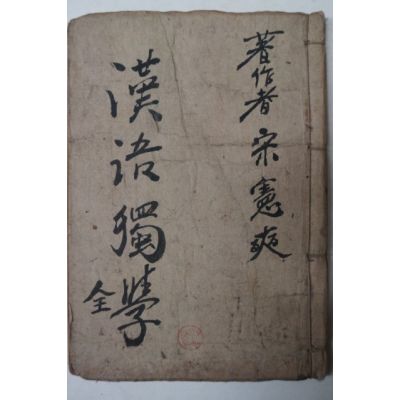 著作者宋憲奭
漢語獨學
全